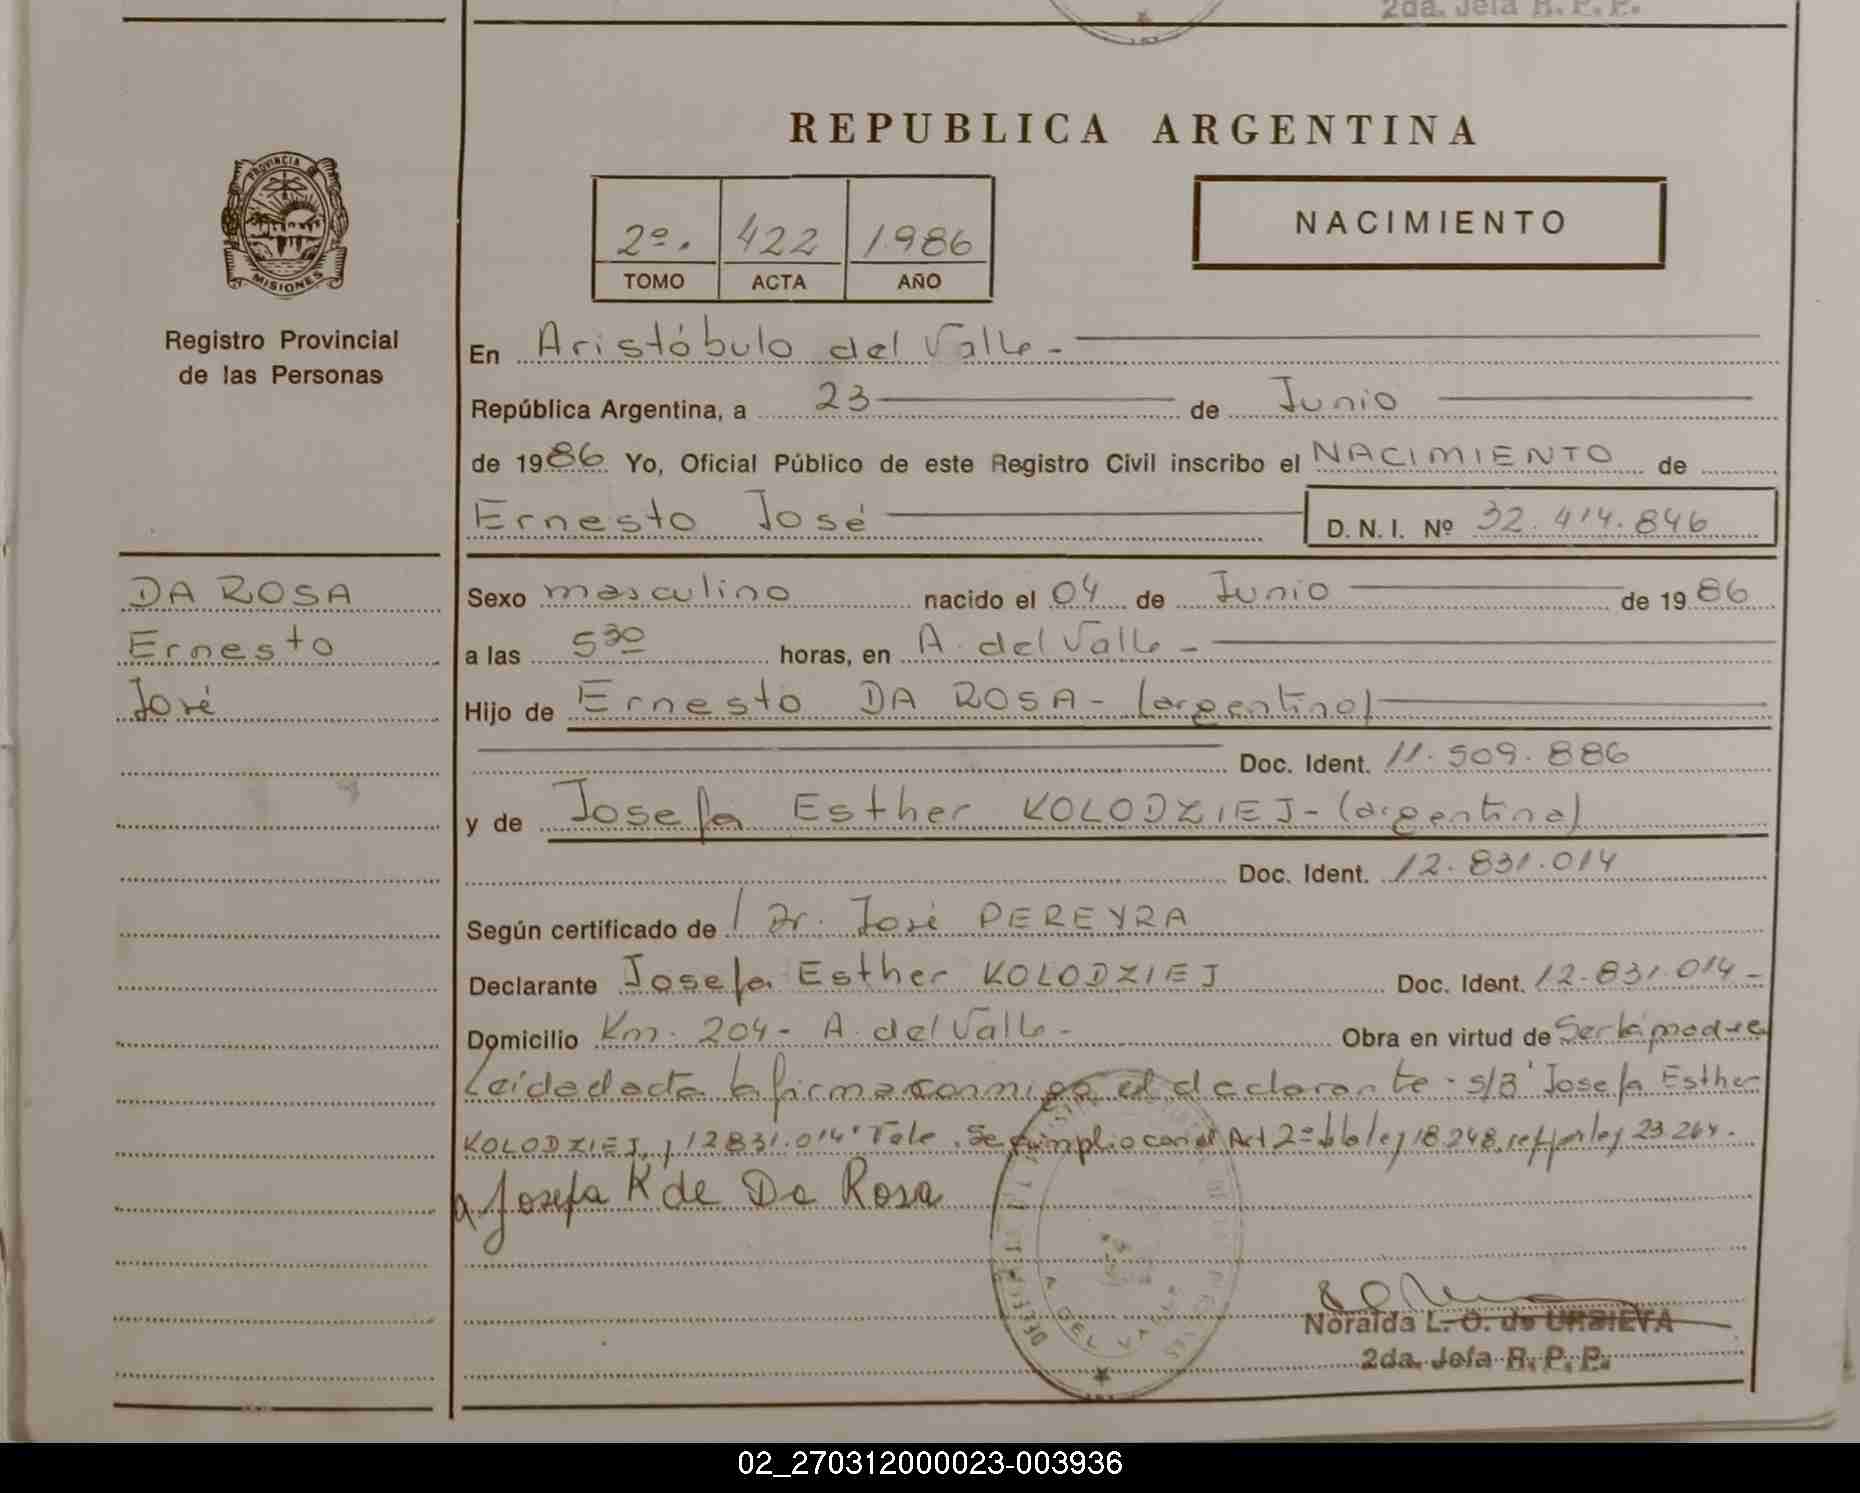 2da. Jefa R. P. P.
REPUBLICA ARGENTINA
PROVINCIA DE
MISIONES
Registro Provincial
de las Personas
2º. 422 1986
TOMO ACTA AÑO
NACIMIENTO
En Aristóbulo del Valle -
República Argentina, a 23 de Junio
de 1986 Yo, Oficial Público de este Registro Civil inscribo el NACIMIENTO de
Ernesto José D. N. I. Nº 32.414.846
DA ROSA
Ernesto
José
Sexo masculino nacido el 04 de Junio de 1986
a las 5 30 horas, en A. del Valle -
Hijo de Ernesto DA ROSA - (argentino)
Doc. Ident. 11.509.886
y de Josefa Esther KOLODZIEJ - (argentina)
Doc. Ident. 12.831.014
Según certificado de Dr. José PEREYRA
Declarante Josefa Esther KOLODZIEJ Doc. Ident. 12.831.014 -
Domicilio Km. 204 - A. del Valle - Obra en virtud de Ser la madre
Leida el acta la firma conmigo el declarante. s/B' Josefa Esther
KOLODZIEJ, 12831.014' Vale. Se cumplio con el Art 2º de la ley 18.248, ref por ley 23.264.
Josefa K de Da Rosa
A. DEL VALLE
Noralda L. O. de URBIETA
2da. Jefa R. P. P.
02_270312000023-003936